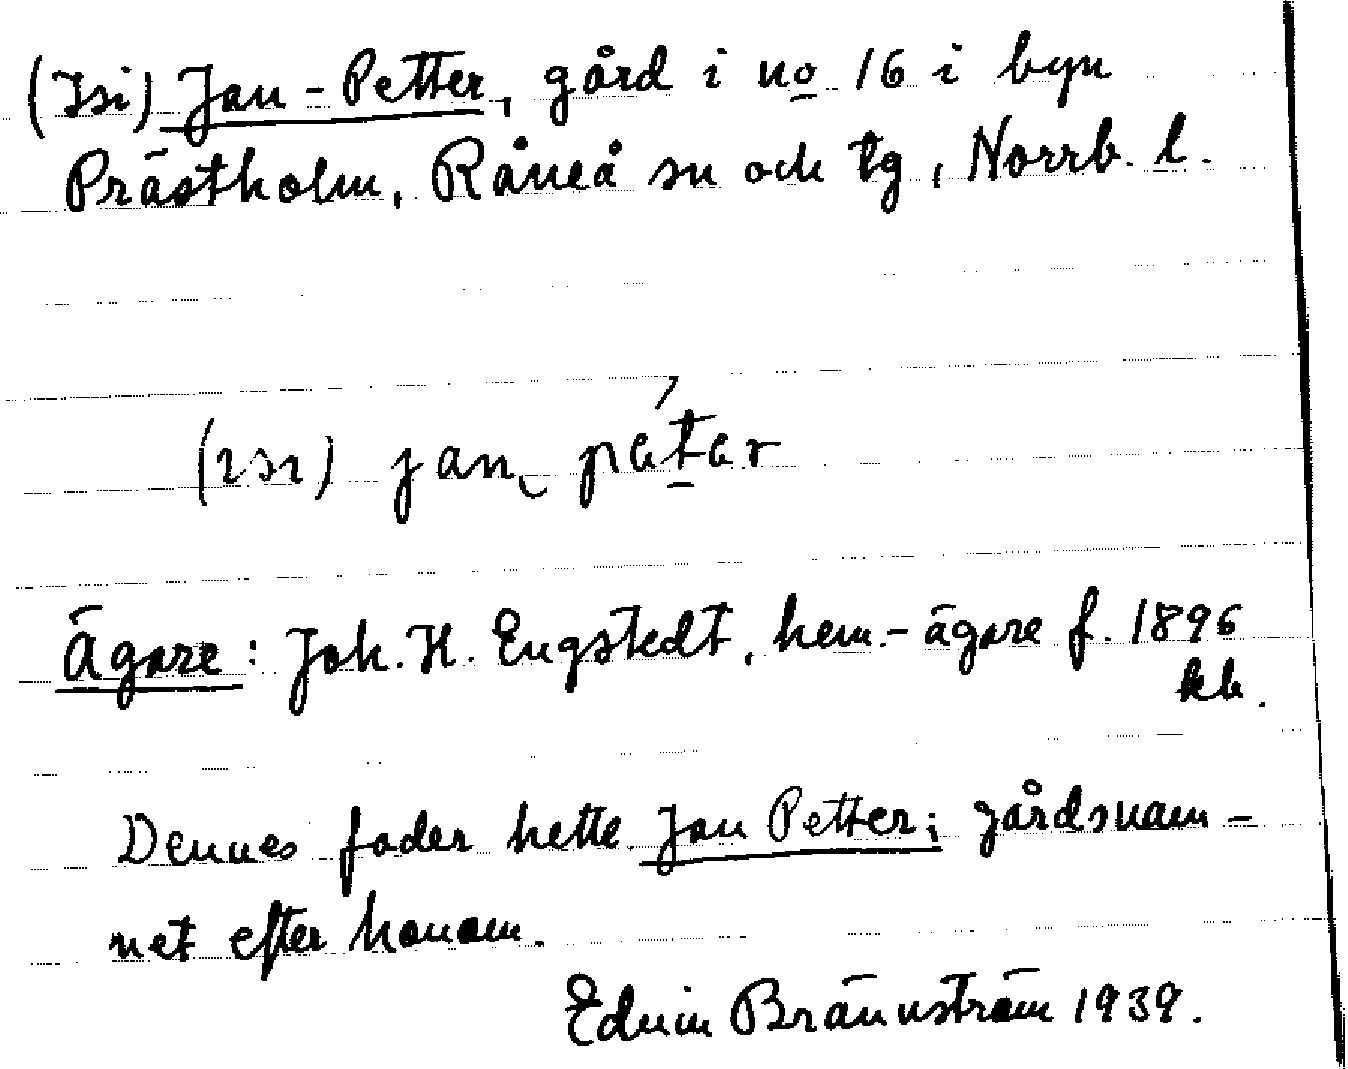 (Isi) Jan-Petter, gård i no 16 i byn
Prästholm, Råneå sn och tg, Norrb. l.
(ɪsɪ) jan petər
Ägare: Joh. H. Engstedt, hem.-ägare f. 1896
kb.
Dennes fader hette Jan Petter; gårdsnam-
net efter honom.
Edvin Brännström 1939.